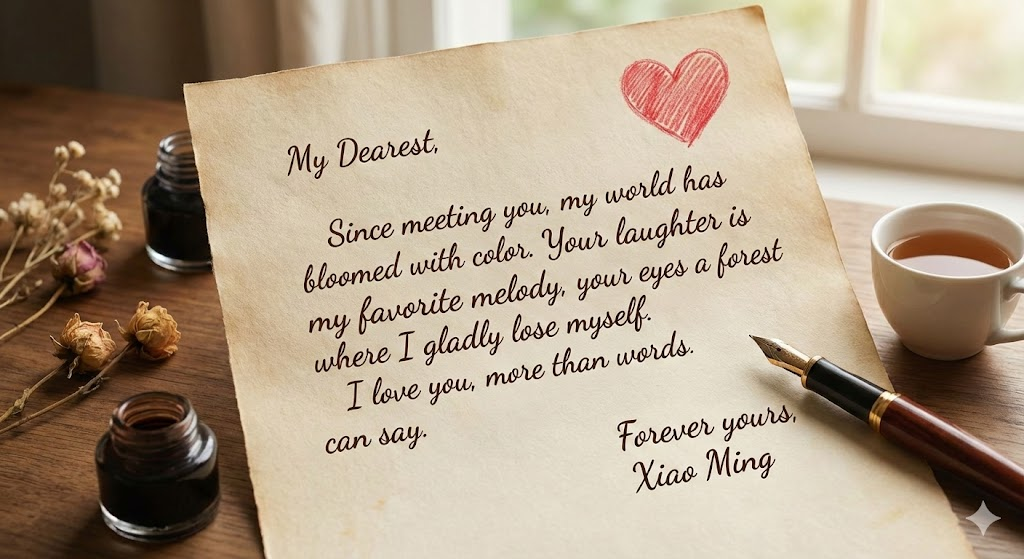 My Dearest,
Since meeting you, my world has
bloomed with color. Your laughter is
my favorite melody, your eyes a forest
where I gladly lose myself.
I love you, more than words.
can say.
Forever yours,
Xiao Ming